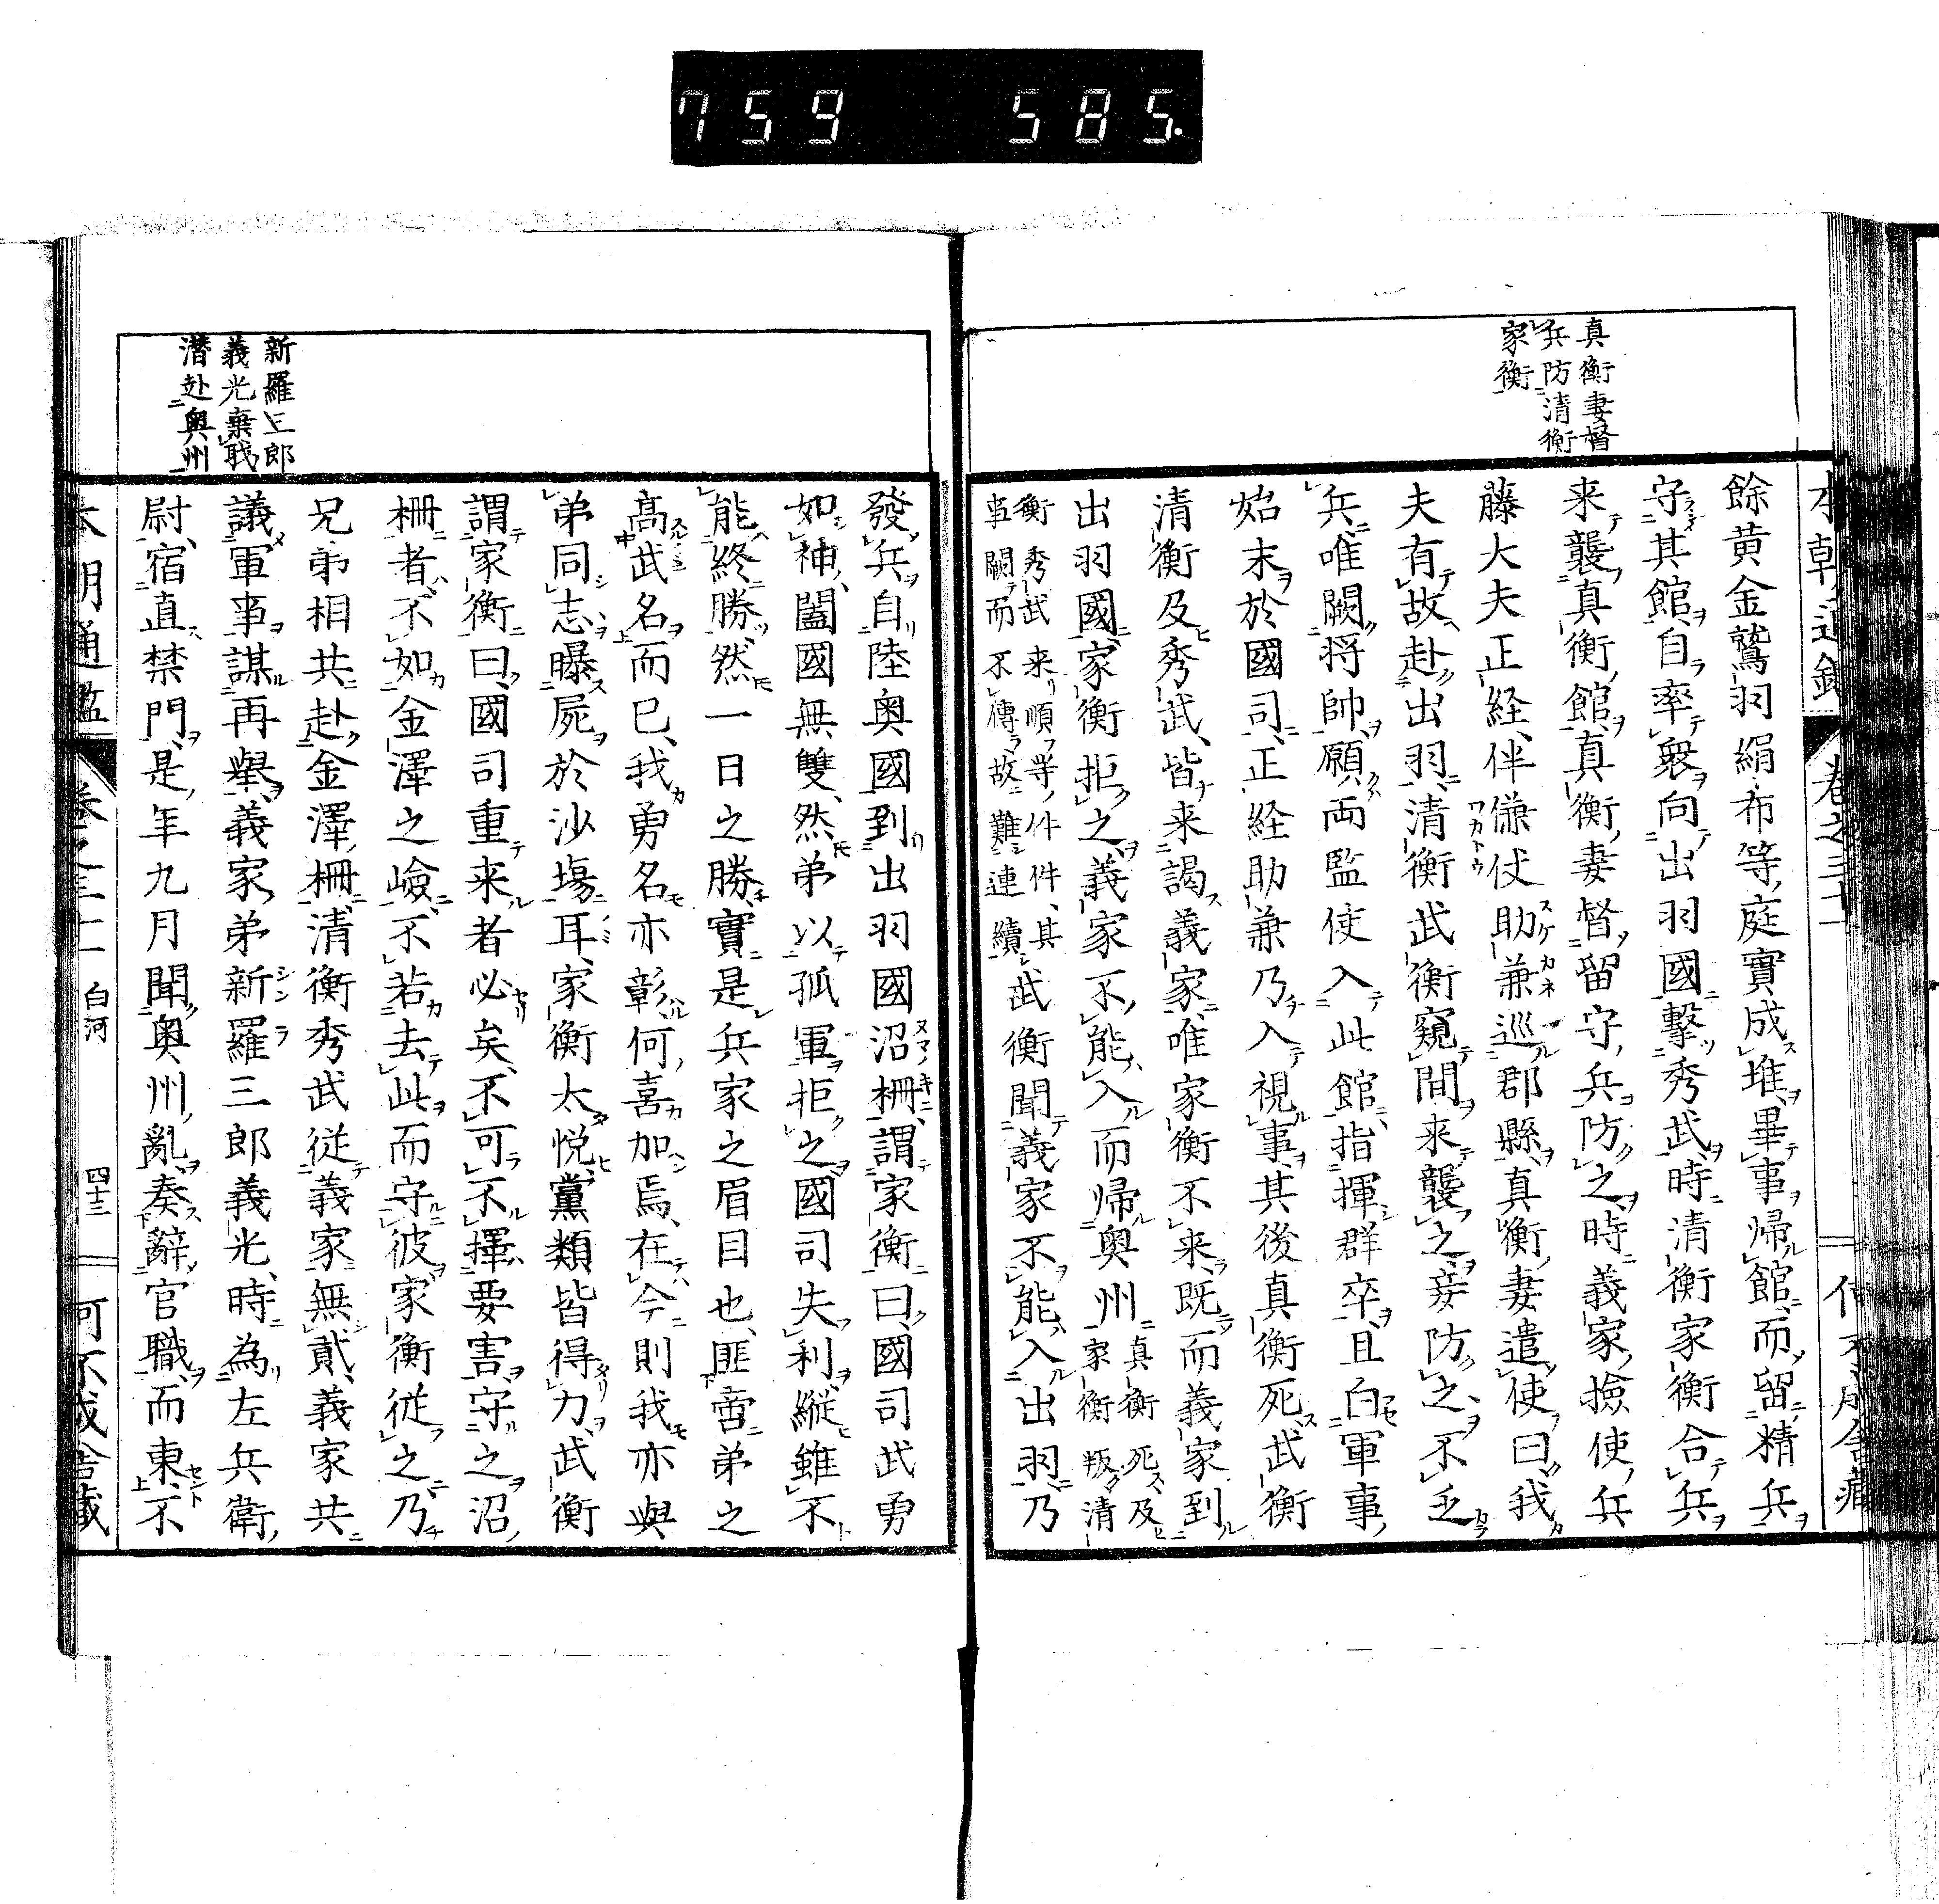 759 585.
真衡妻督
兵防清衡
家衡
本朝通鑑 卷之三十一
餘黄金鷲羽絹布等庭實成堆畢事帰館而留精兵
守其館自率衆向出羽國擊秀武時清衡家衡合兵
来襲真衡館真衡妻督留守兵防之時義家撿使兵
藤大夫正経伴傔仗助兼巡郡縣真衡妻遣使曰我
夫有故赴出羽清衡武衡窺間来襲之妾防之不乏
兵唯闕將帥願両監使入此館指揮群卒且白軍事
始末於國司正経助兼乃入視事其後真衡死武衡
清衡及秀武皆来謁義家唯家衡不来既而義家到
出羽國家衡拒之義家不能入而帰奥州真衡死及
家衡叛清
衡秀武来順等件件其
事闕而不傳故難連續武衡聞義家不能入出羽乃
新羅三郎
義光棄職
潜赴奥州
發兵自陸奥國到出羽國沼柵謂家衡曰國司武勇
如神闔國無雙然弟以孤軍拒之國司失利縦雖不
能終勝然一日之勝實是兵家之眉目也匪啻弟之
高武名而已我勇名亦彰何喜加焉在今則我亦與
弟同志曝屍於沙塲耳家衡太悦黨類皆得力武衡
謂家衡曰國司重来者必矣不可不擇要害守之沼
柵者不如金澤之嶮不若去此而守彼家衡従之乃
兄弟相共赴金澤柵清衡秀武従義家無貳義家共
議軍事謀再舉義家弟新羅三郎義光時為左兵衛
尉宿直禁門是年九月聞奥州亂奏辭官職而東不
本朝通鑑 卷之三十一 白河 四十三 何不成舎蔵